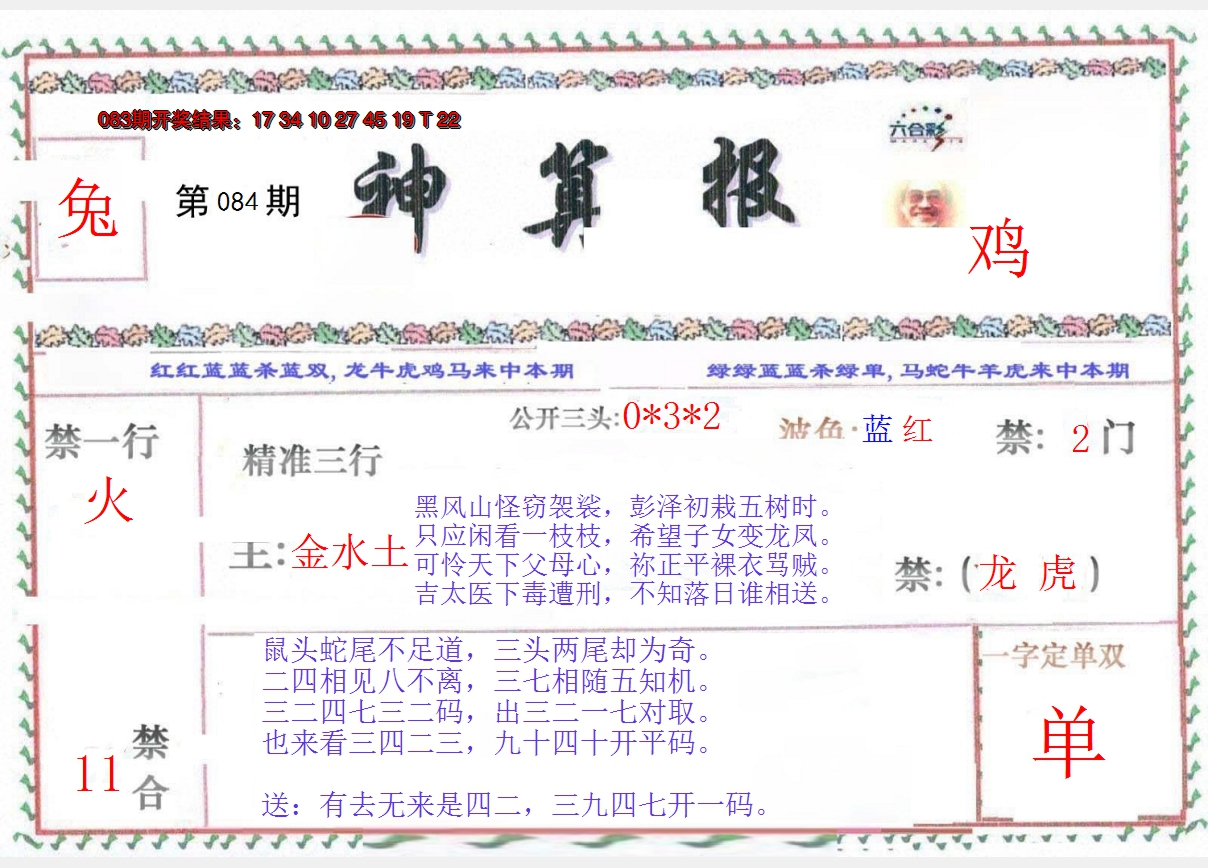 083期开奖结果：17 34 10 27 45 19 T 22
六合彩
兔
第 084 期
神算报
鸡
红红蓝蓝杀蓝双,龙牛虎鸡马来中本期
绿绿蓝蓝杀绿单,马蛇牛羊虎来中本期
禁一行
火
精准三行
公开三头:0*3*2
波色:蓝 红
禁: 2 门
黑风山怪窃袈裟，彭泽初栽五树时。
只应闲看一枝枝，希望子女变龙凤。
可怜天下父母心，祢正平裸衣骂贼。
吉太医下毒遭刑，不知落日谁相送。
主:金水土
禁:(龙 虎)
鼠头蛇尾不足道，三头两尾却为奇。
二四相见八不离，三七相随五知机。
三二四七三二码，出三二一七对取。
也来看三四二三，九十四十开平码。
送：有去无来是四二，三九四七开一码。
11 禁合
一字定单双
单